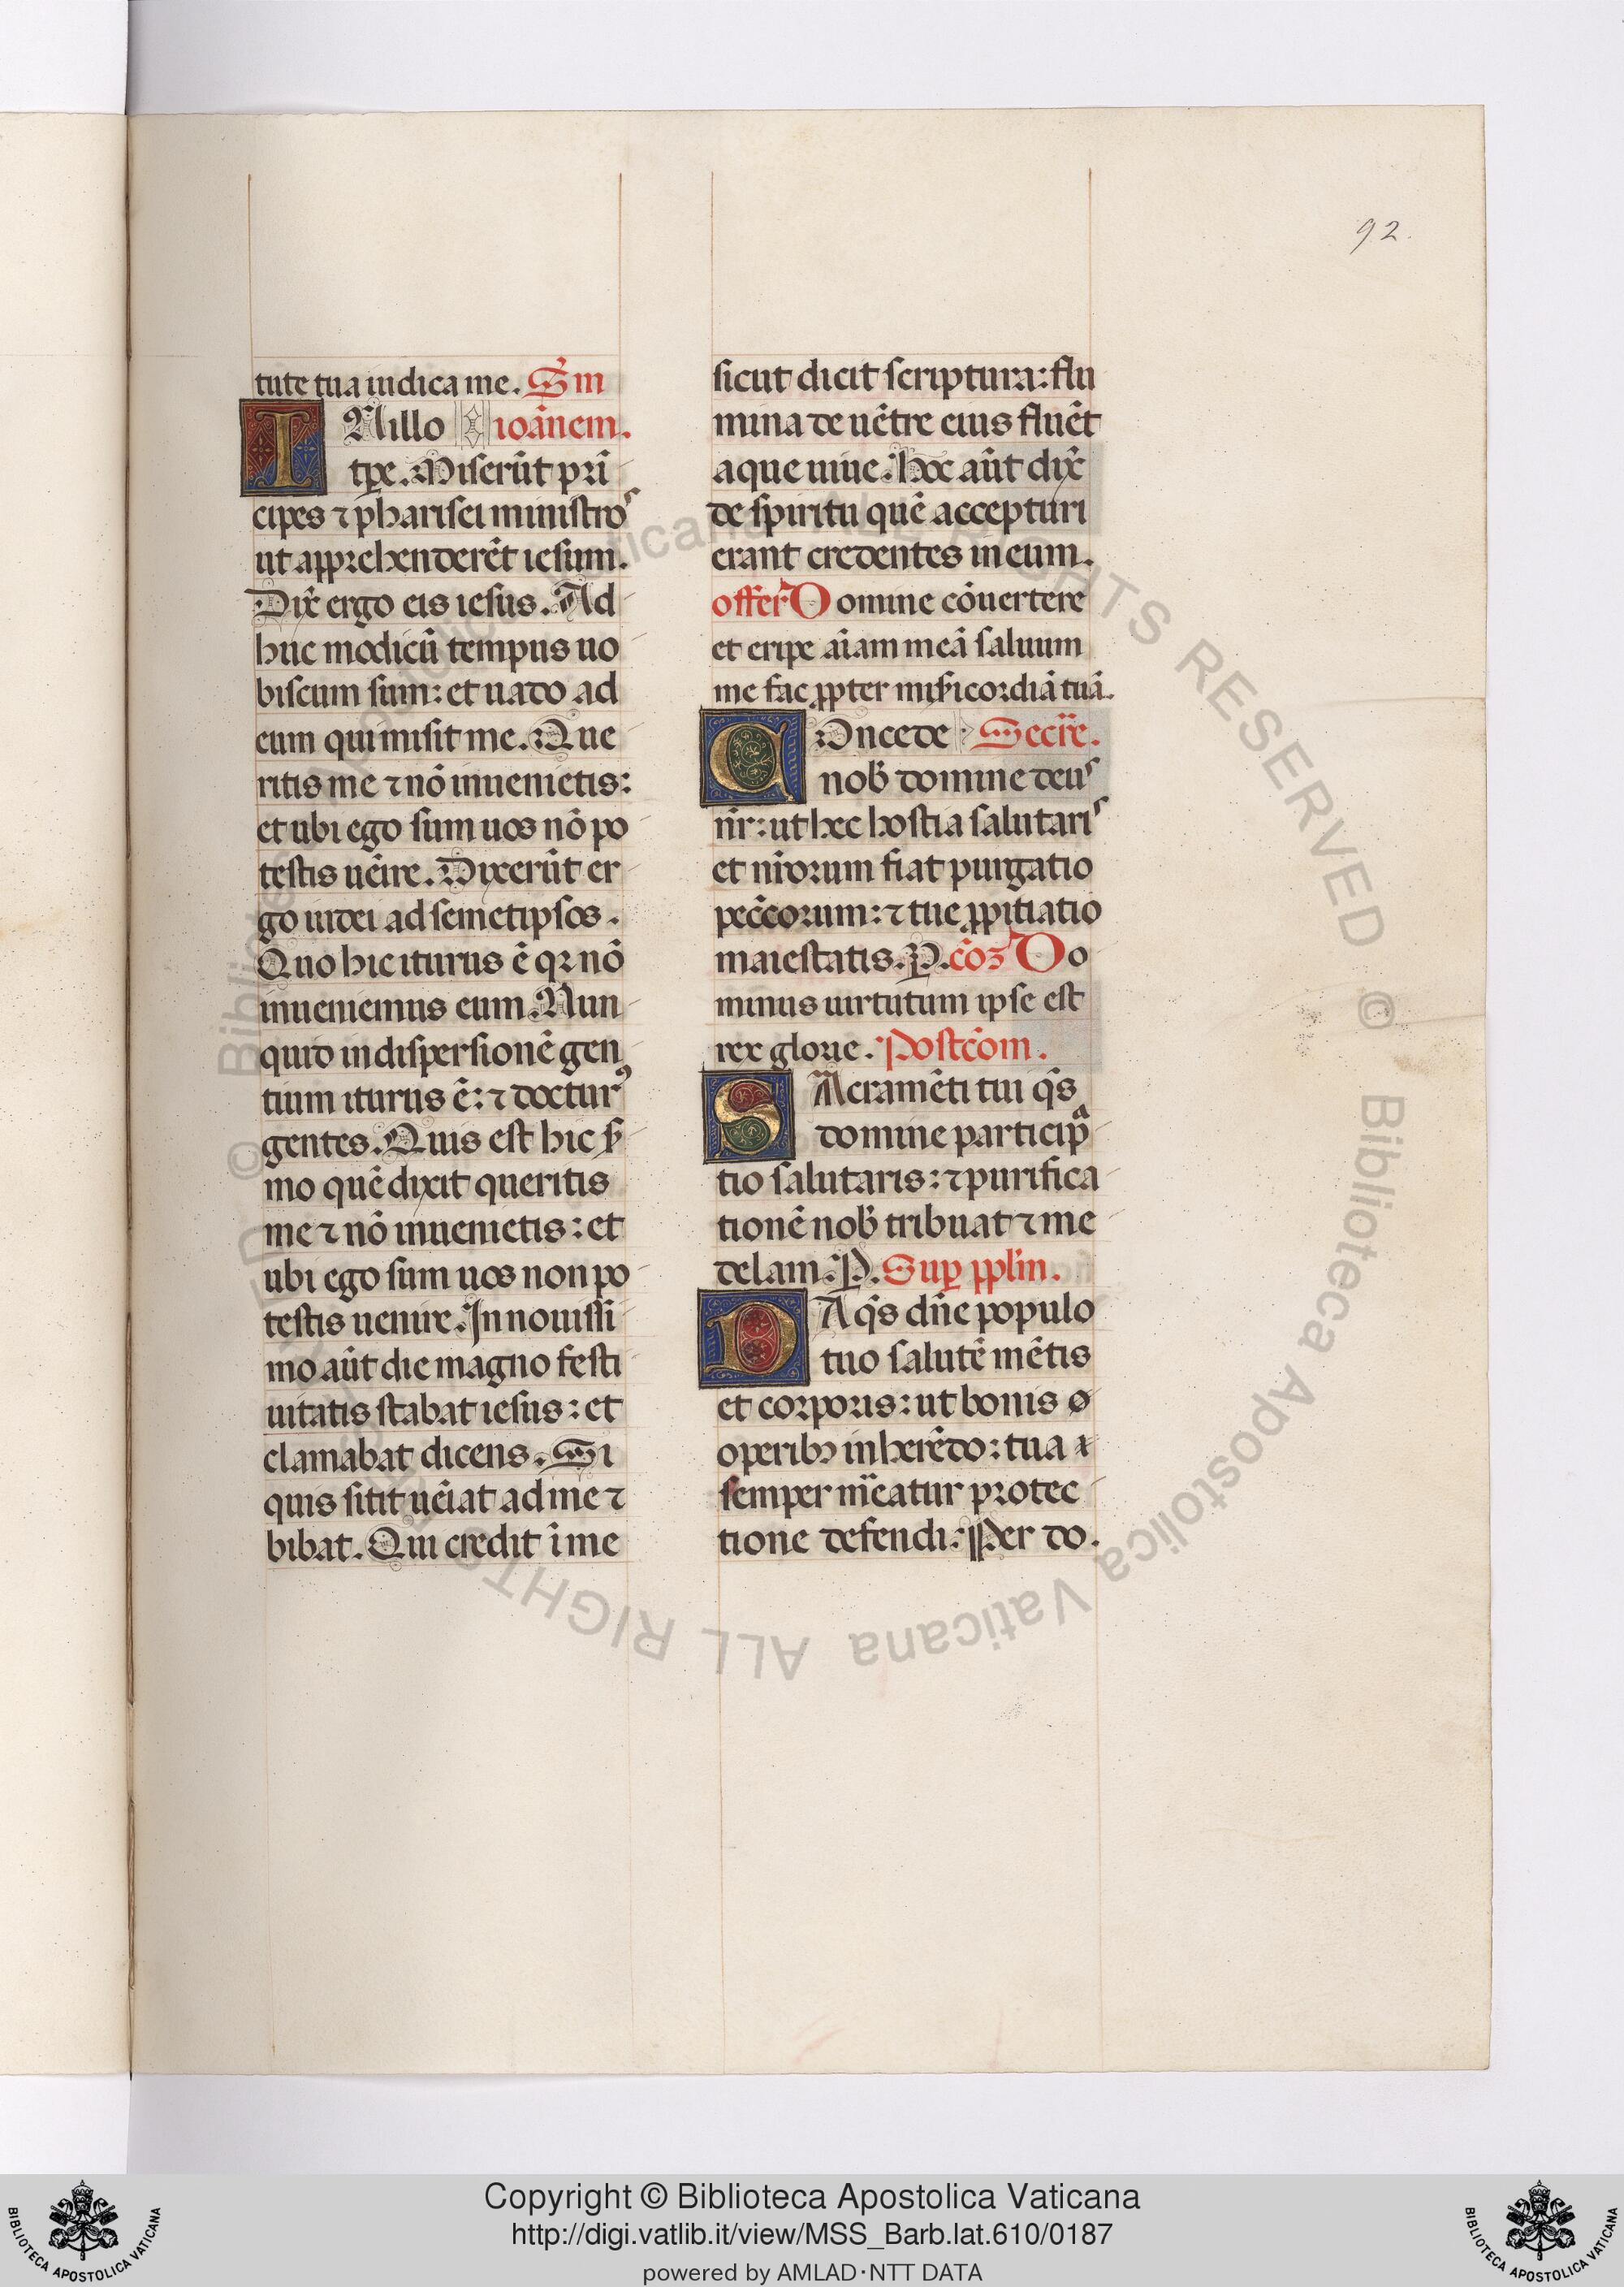 92.
tute tua iudica me. Sm̃
IN illo ioãnem.
tp̃e. Miserũt pri
cipes ⁊ pharisei ministros
ut apprehenderẽt iesum.
Dix̃ ergo eis iesus. Ad
huc modicũ tempus uo
biscum sum: et uado ad
eum qui misit me. Que
ritis me ⁊ nõ inuenietis:
et ubi ego sum uos nõ po
testis uẽire. Dixerũt er
go iudei ad semetipsos.
Quo hic iturus ẽ qꝛ nõ
inueniemus eum. Nun
quid in dispersionẽ gen
tium iturus ẽ: ⁊ docturꝰ
gentes. Quis est hic ẜ
mo quẽ dixit queritis
me ⁊ nõ inuenietis: et
ubi ego sum uos non po
testis uenire. In nouissi
mo aũt die magno festi
uitatis stabat iesus: et
clamabat dicens. Si
quis sitit uẽiat ad me ⁊
bibat. Qui credit ĩ me
sicut dicit scriptura: flu
mina de uẽtre eius fluẽt
aque uiue. Hoc aũt dix̃
de spiritu quẽ accepturi
erant credentes in eum.
offer̃ Domine cõuertere
et eripe aĩam meã saluum
me fac ꝓpter miẜicordiã tuã.
COncede Secr̃e.
nob̃ domine deus
nr̃: ut hec hostia salutaris
et nr̃orum fiat purgatio
pecc̃orum: ⁊ tue ꝓpitiatio
maiestatis. P. cõꝫ Do
minus uirtutum ipse est
rex glorie. Postcõm.
SAcramẽti tui qs̃
domine participa
tio salutaris: ⁊ purifica
tionẽ nob̃ tribuat ⁊ me
delam. P. Suꝑ pplm̃.
DA qs̃ dñe populo
tuo salutẽ mẽtis
et corporis: ut bonis
operibꝰ inherẽdo: tua
semper m̃eatur protec
tione defendi. Per do.
Copyright © Biblioteca Apostolica Vaticana
http://digi.vatlib.it/view/MSS_Barb.lat.610/0187
powered by AMLAD·NTT DATA
BIBLIOTECA APOSTOLICA VATICANA
BIBLIOTECA APOSTOLICA VATICANA